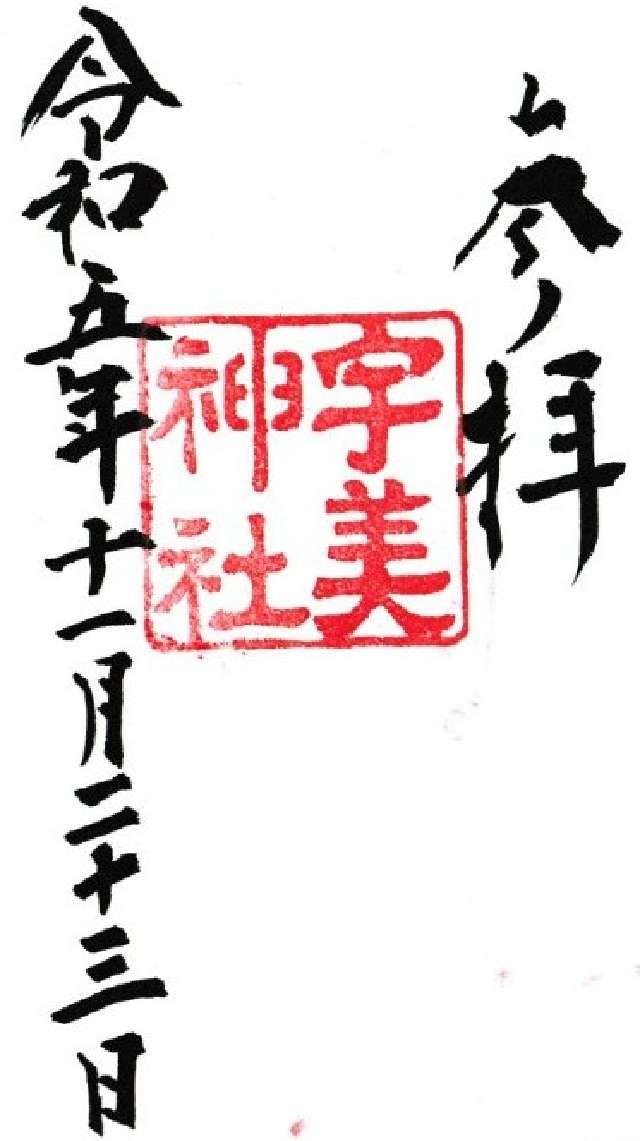 参拝
宇美
神社
令和五年十一月二十三日